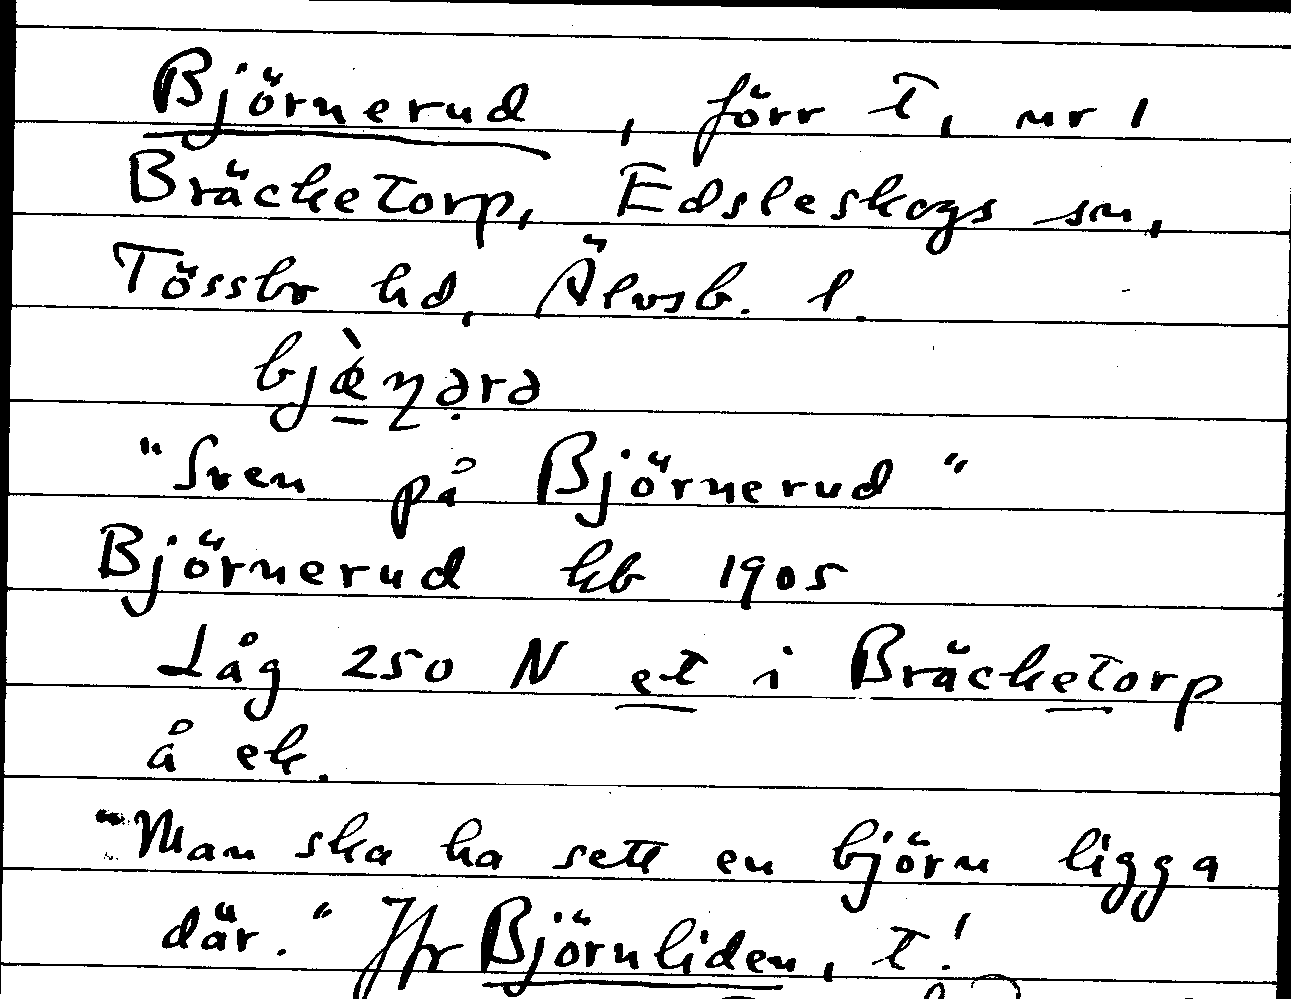 Björnerud, förr t, nr 1
Bräcketorp, Edsleskogs sn,
Tössbo hd, Älvsb. l.
bjæ̀ɳərə
"Sven på Björnerud"
Björnerud kb 1905
Låg 250 N et i Bräcketorp
å ek.
"Man ska ha sett en björn ligga
där." Jfr Björnliden, t!